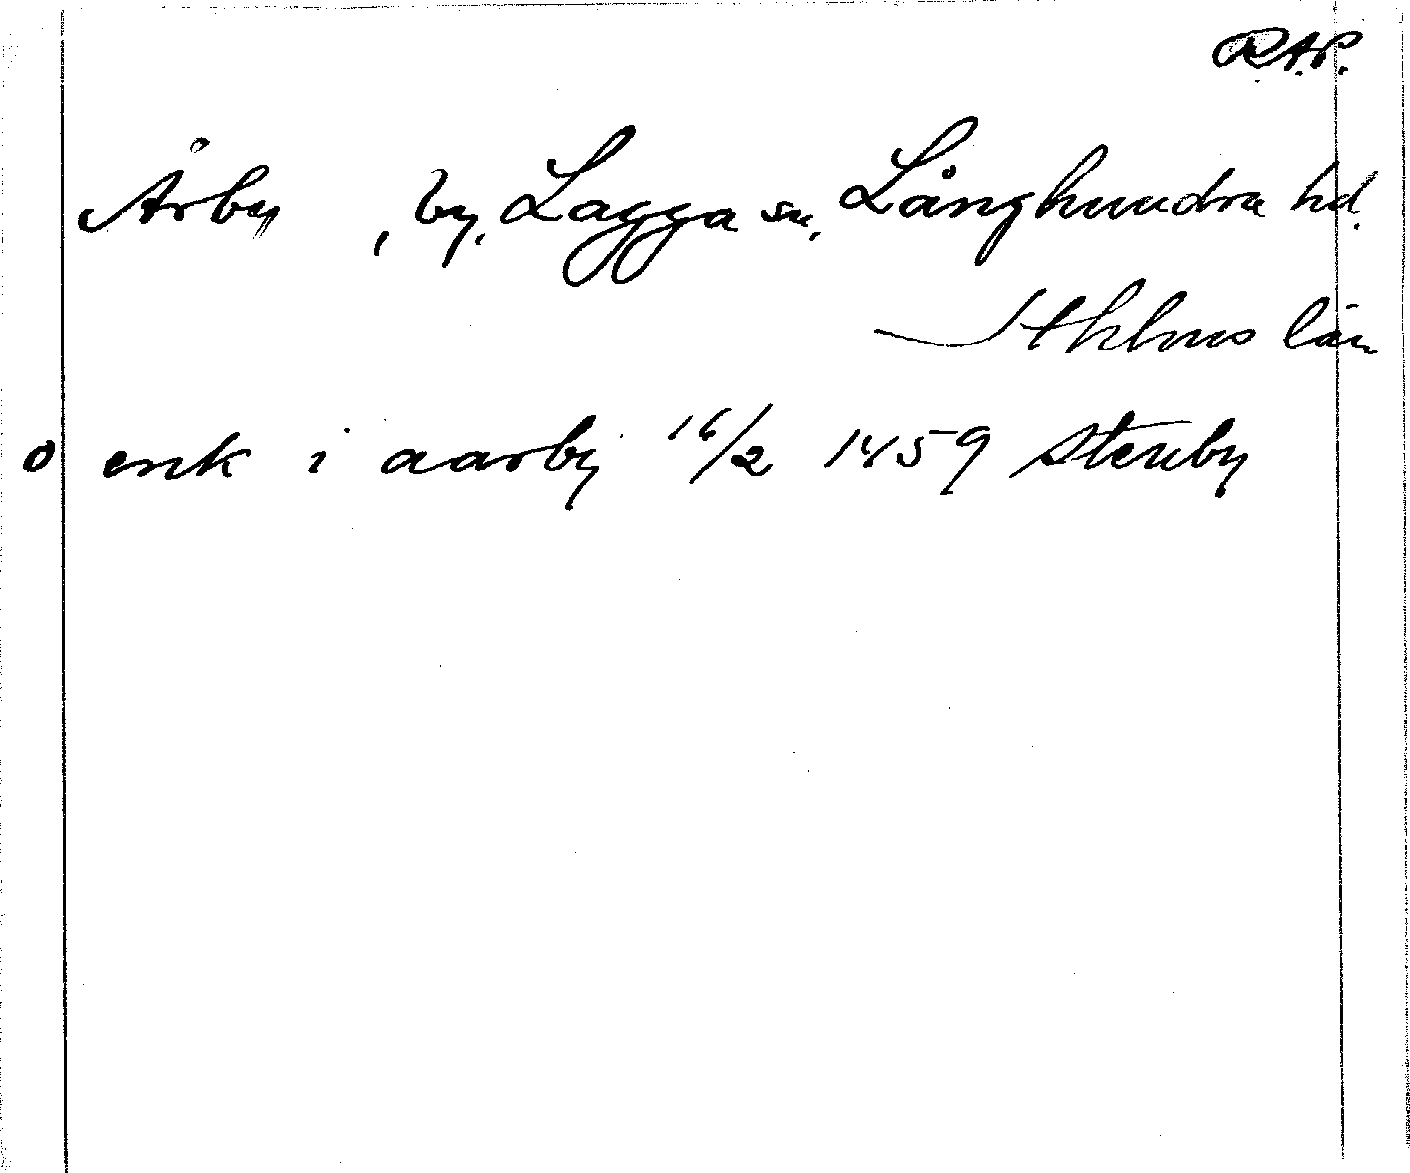 R.A.P.
Årby , by, Lagga sn, Långhundra hd.
Sthlms län
o enk i aarby 16/2 1459 Stenby